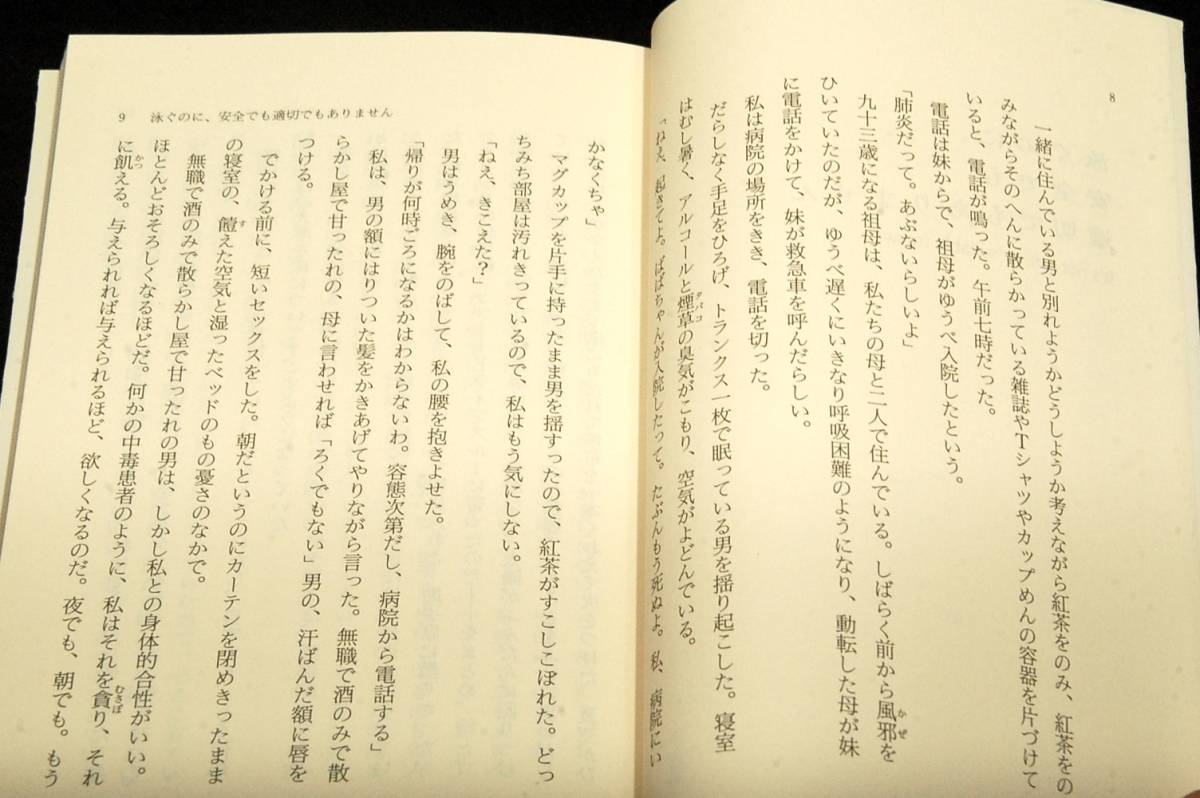 8
一緒に住んでいる男と別れようかどうしようか考えながら紅茶をのみ、紅茶をの
みながらそのへんに散らかっている雑誌やTシャツやカップめんの容器を片づけて
いると、電話が鳴った。午前七時だった。
電話は妹からで、祖母がゆうべ入院したという。
「肺炎だって。あぶないらしいよ」
九十三歳になる祖母は、私たちの母と二人で住んでいる。しばらく前から風邪を
ひいていたのだが、ゆうべ遅くにいきなり呼吸困難のようになり、動転した母が妹
に電話をかけて、妹が救急車を呼んだらしい。
私は病院の場所をきき、電話を切った。
だらしなく手足をひろげ、トランクス一枚で眠っている男を揺り起こした。寝室
はむし暑く、アルコールと煙草の臭気がこもり、空気がよどんでいる。
「ねえ、起きてよ。ばばちゃんが入院したって。たぶんもう死ぬよ。私、病院にい
9 泳ぐのに、安全でも適切でもありません
かなくちゃ」
マグカップを片手に持ったまま男を揺すったので、紅茶がすこしこぼれた。どっ
ちみち部屋は汚れきっているので、私はもう気にしない。
「ねえ、きこえた?」
男はうめき、腕をのばして、私の腰を抱きよせた。
「帰りが何時ごろになるかはわからないわ。容態次第だし、病院から電話する」
私は、男の額にはりついた髪をかきあげてやりながら言った。無職で酒のみで散
らかし屋で甘ったれの、母に言わせれば「ろくでもない」男の、汗ばんだ額に唇を
つける。
でかける前に、短いセックスをした。朝だというのにカーテンを閉めきったまま
の寝室の、饐えた空気と湿ったベッドのもの憂さのなかで。
無職で酒のみで散らかし屋で甘ったれの男は、しかし私との身体的合性がいい。
ほとんどおそろしくなるほどだ。何かの中毒患者のように、私はそれを貪り、それ
に飢える。与えられれば与えられるほど、欲しくなるのだ。夜でも、朝でも。もう